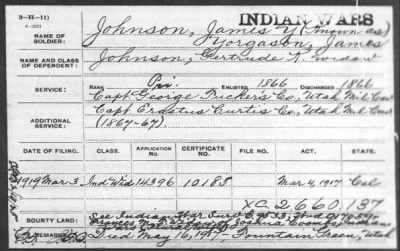 3-III-11)
INDIAN WARS
NAME OF SOLDIER: Johnson, James Y (Known as)
Yorgason, James
NAME AND CLASS OF DEPENDENT: Johnson, Gertrude K. widow
SERVICE: Pri. ENLISTED 1866 DISCHARGED 1866
Capt George Tucker's Co., Utah Mil Cav
ADDITIONAL SERVICE: Capt Erastus Curtis Co, Utah Mil Cav
(1867-67).
DATE OF FILING. CLASS. APPLICATION NO. CERTIFICATE NO. FILE NO. ACT. STATE.
1919 Mar 3 Ind Wid 14396 10185 Mar 4, 1917 Cal
XC 2660.187
BOUNTY LAND: See Indian War Surv
REMARKS: Died May 16, 1917 Fountain Green, Utah